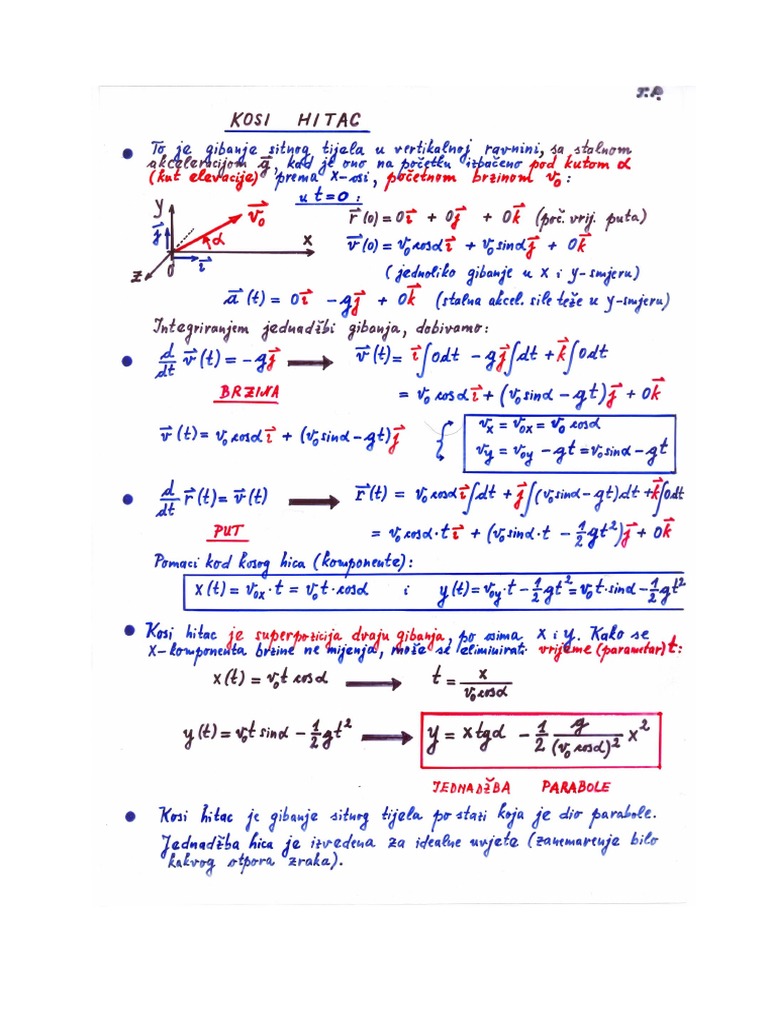 KOSI HITAC
• To je gibanje sitnog tijela u vertikalnoj ravnini, sa stalnom
akceleracijom g⃗, kad je ono na početku izbačeno pod kutom α
(kut elevacije) prema x-osi, početnom brzinom v₀:
u t=0:
y v⃗₀ j⃗ α x z 0 i⃗
r⃗(0) = 0i⃗ + 0j⃗ + 0k⃗ (poč. vrij. puta)
v⃗(0) = v₀cosαi⃗ + v₀sinαj⃗ + 0k⃗
(jednoliko gibanje u x i y-smjeru)
a⃗(t) = 0i⃗ - gj⃗ + 0k⃗ (stalna akcel. sile teže u y-smjeru)
Integriranjem jednadžbi gibanja, dobivamo:
• d/dt v⃗(t) = -gj⃗ → v⃗(t) = i⃗∫0dt - gj⃗∫dt + k⃗∫0dt
BRZINA = v₀cosαi⃗ + (v₀sinα - gt)j⃗ + 0k⃗
v⃗(t) = v₀cosαi⃗ + (v₀sinα - gt)j⃗
vₓ = v₀ₓ = v₀cosα
v_y = v₀y - gt = v₀sinα - gt
• d/dt r⃗(t) = v⃗(t) → r⃗(t) = v₀cosαi⃗∫dt + j⃗∫(v₀sinα - gt)dt + k⃗∫0dt
PUT = v₀cosα·ti⃗ + (v₀sinα·t - 1/2gt²)j⃗ + 0k⃗
Pomaci kod kosog hica (komponente):
x(t) = v₀ₓ·t = v₀t·cosα i y(t) = v₀y·t - 1/2gt² = v₀t·sinα - 1/2gt²
• Kosi hitac je superpozicija dvaju gibanja, po osima x i y. Kako se
x-komponenta brzine ne mijenja, može se eliminirati vrijeme (parametar) t:
x(t) = v₀t cosα → t = x/(v₀cosα)
y(t) = v₀t sinα - 1/2gt² → y = x tgα - 1/2 g/(v₀cosα)² x²
JEDNADŽBA PARABOLE
• Kosi hitac je gibanje sitnog tijela po stazi koja je dio parabole.
Jednadžba hica je izvedena za idealne uvjete (zanemarenje bilo
kakvog otpora zraka).